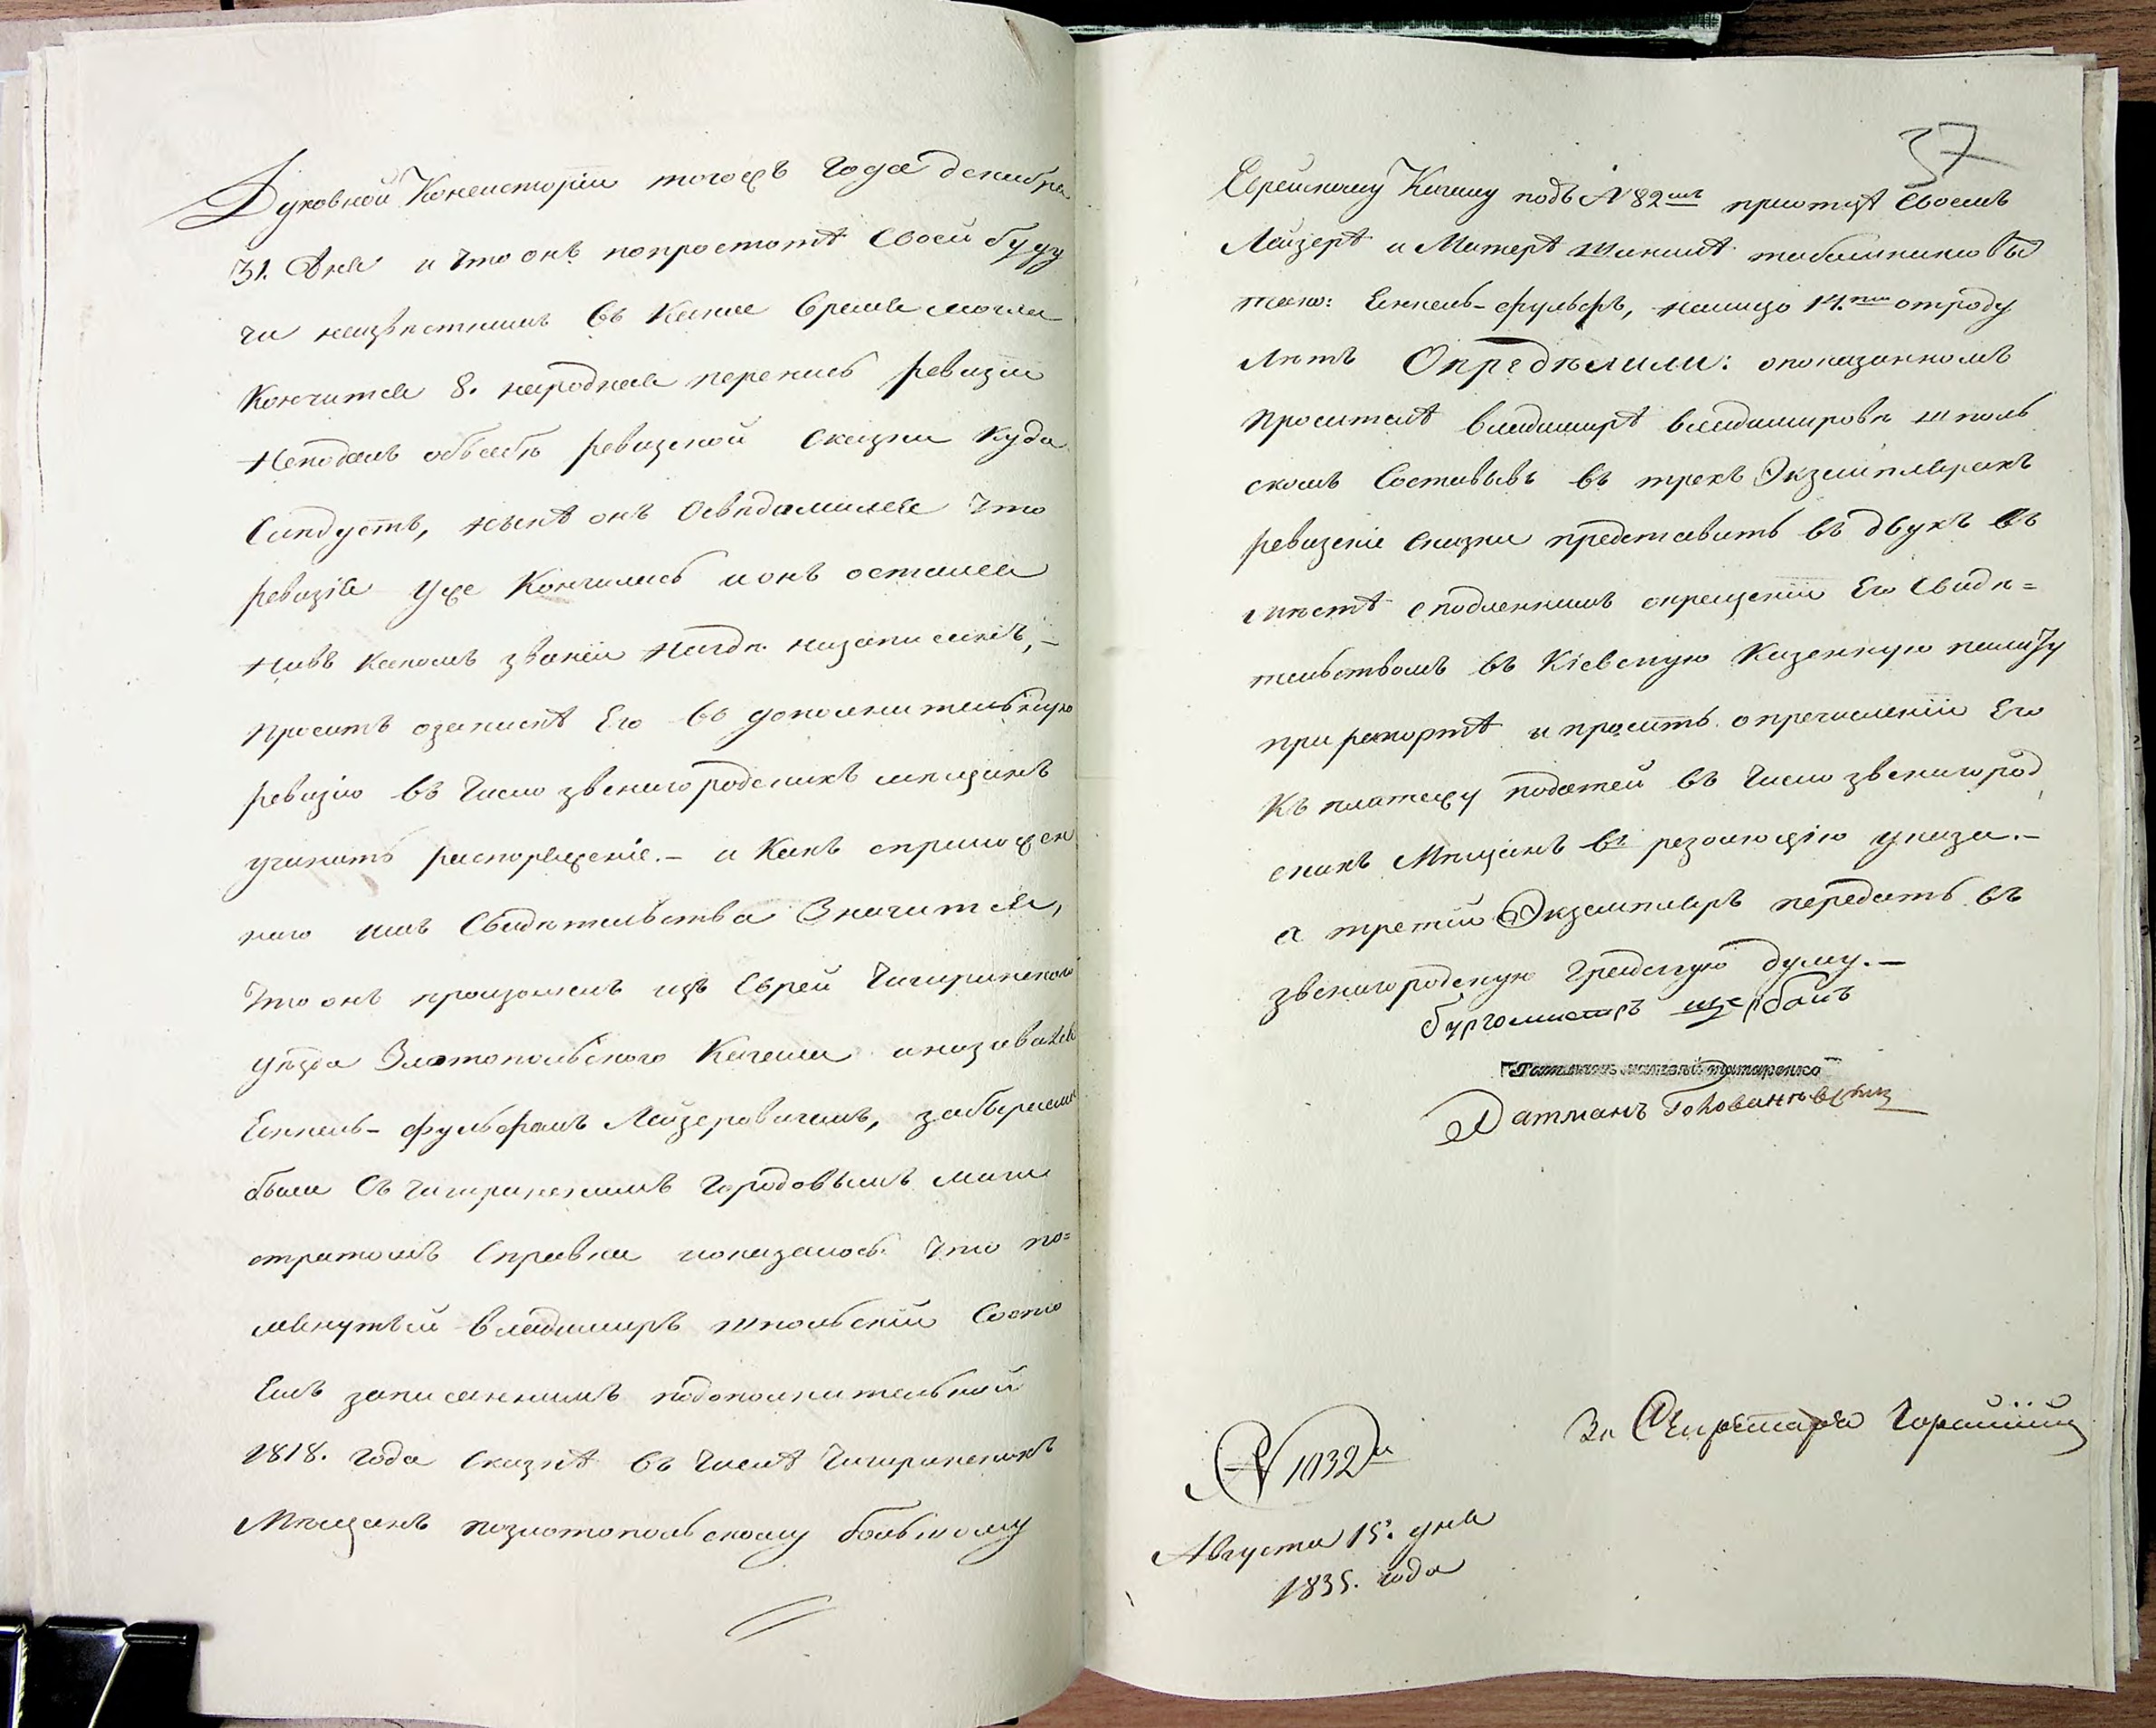 Духовной Консисторіи тогожъ года декабря
31. Дня и что онъ попростотѣ Своей буду
чи неизвѣстнымъ въ Какое время могла
Кончится 8. народная перепись ревизіи
Неподалъ обсебѣ ревизской Сказки куда
Слѣдуетъ, нынѣ онъ Освѣдомился что
ревизія уже Кончилась ионъ остался
Нивъ Какомъ званіи Нигдѣ незаписанъ, –
проситъ озапискѣ Его въ дополнительную
ревизію въ Число звенигородскихъ мѣщанъ
учинить распоряженіе. – и Какъ сприложен
наго имъ Свидѣтельства Значится,
Что онъ произошелъ изъ Еврей Чигиринскаго
уѣзда Златопольского Кагала иназывался
Еннель-фульфомъ Лейзеровичемъ,
была Съ чигиринскимъ городовымъ маги
стратомъ Справка иоказалось что по=
мянутый владимиръ шпольскій Состо
Елъ записаннымъ подополнительной
1818. года Сказкѣ въ Числѣ Чигиринскихъ
Мѣщанъ позлотопольскому большому
37
Еврейскому Кагалу подъ №82мъ приотцѣ Своемъ
Лейзерѣ и Матерѣ
тако: Еннель-фульфъ, налицо 14.ти отроду
лѣтъ Опредѣлили: опоказанномъ
просителѣ владимирѣ владимировѣ шполь
скомъ Составивъ въ трехъ Экземплярахъ
ревизскіе сказки представить въ двухъ въ
мѣстѣ сподленнымъ окрещеніи Его Свидѣ=
тельствомъ въ Кіевскую Казенную палату
при рапортѣ и просить опречисленіи Его
Къ платежу податей въ Число звенигород
скихъ Мѣщанъ въ резолюцію указа. –
а третій Экземпляръ передать въ
звенигородскую Градскую думу. –
бургомистръ щербань
Ратманъ Голованѣвскій
За Секретаря
№ 1032й
Августа 15. дня
1835. года